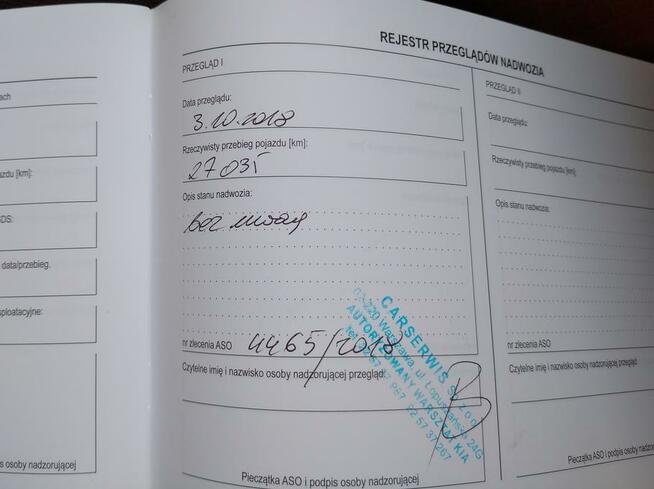 REJESTR PRZEGLĄDÓW NADWOZIA
ach
azdu [km]:
SDS:
data/przebieg.
sploatacyjne:
is osoby nadzorującej
PRZEGLĄD I
Data przeglądu:
3.10.2018
Rzeczywisty przebieg pojazdu [km]:
27031
Opis stanu nadwozia:
bez uwag
nr zlecenia ASO 4465/2018
Czytelne imię i nazwisko osoby nadzorującej przegląd:
CARSERWIS Sp. z o.o.
02-220 Warszawa, ul. Łopuszańska 24G
AUTORYZOWANY WARSZTAT KIA
Pieczątka ASO i podpis osoby nadzorującej
PRZEGLĄD II
Data przeglądu:
Rzeczywisty przebieg pojazdu [km]:
Opis stanu nadwozia:
nr zlecenia ASO
Czytelne imię i nazwisko osoby nad
Pieczątka ASO i podpis osoby